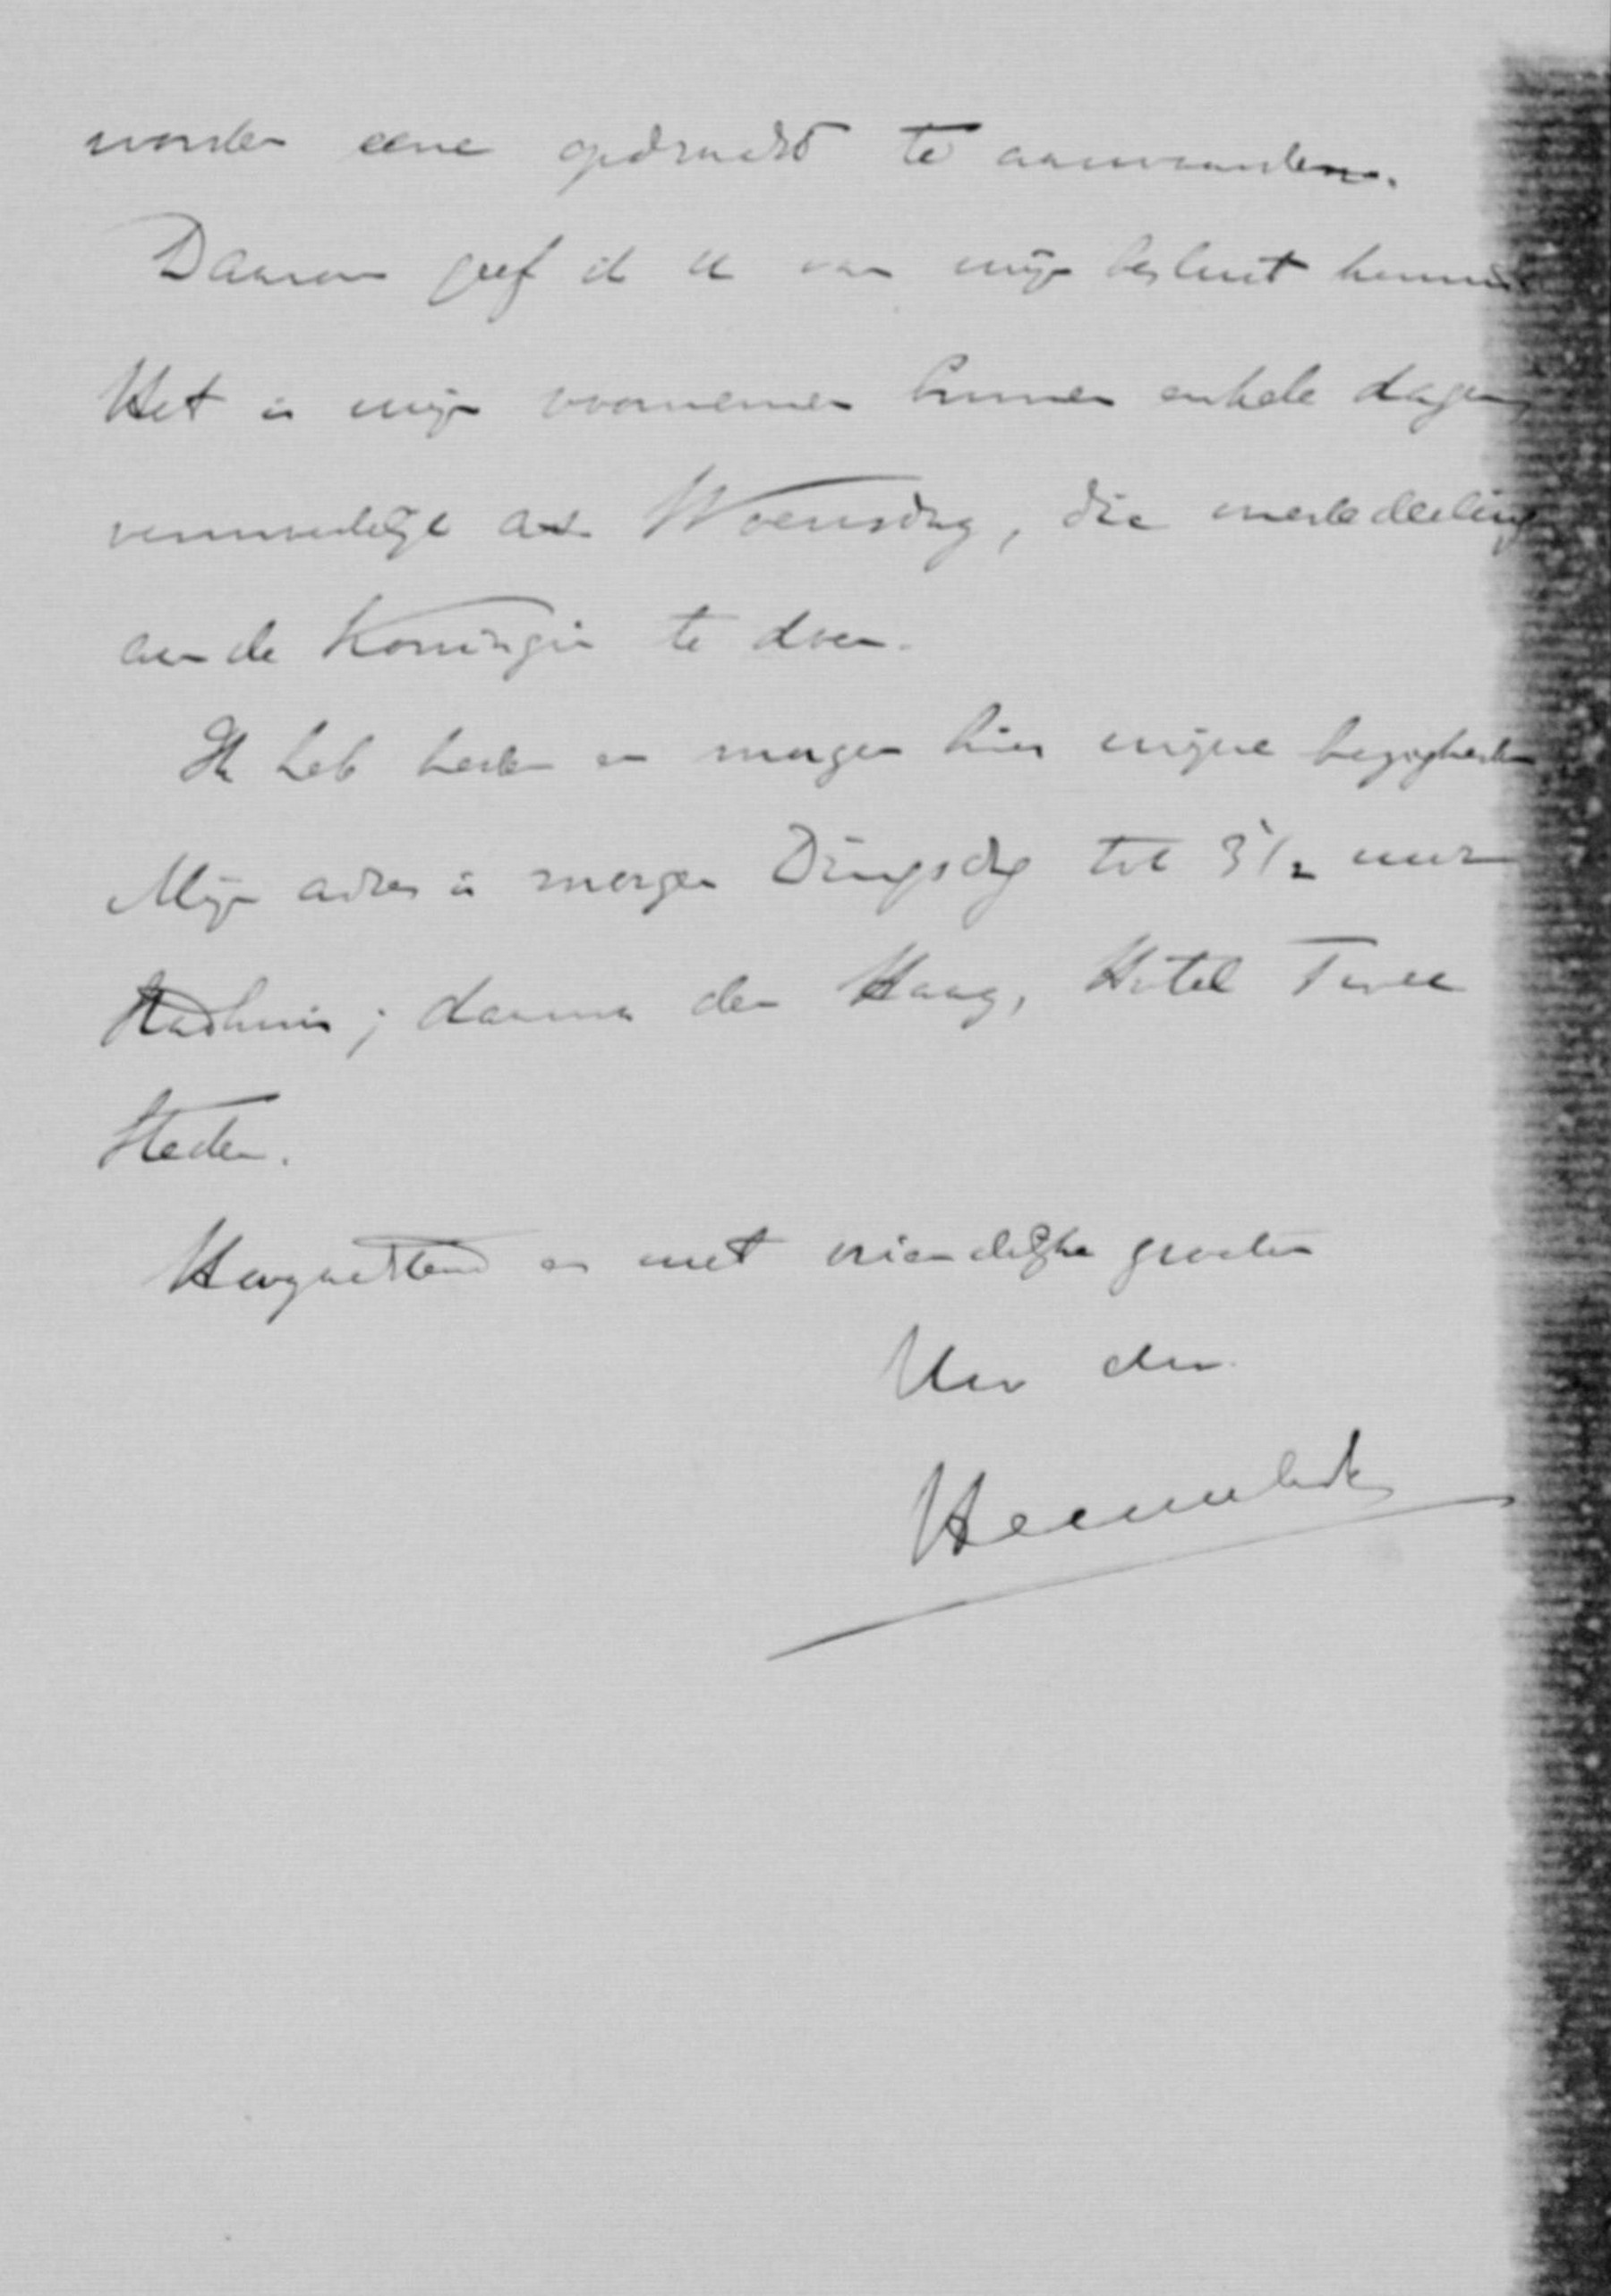 worden eene opdracht te aanvaarden.
Daarom geef ik u van mijn besluit kennis
Het is mijn voornemen binnen enkele dagen,
vermoedelijk a.s. Woensdag, die mededeeling
aan de Koningin te doen.
Ik heb heden en morgen hier mijne bezigheden
Mijn adres is morgen Dingsdag tot 3 1/2 uur
Stadhuis; daarna den Haag, Hotel Twee
Steden.
Hoogachtend en met vriendelijke groeten
Uw dw.
Heemskerk